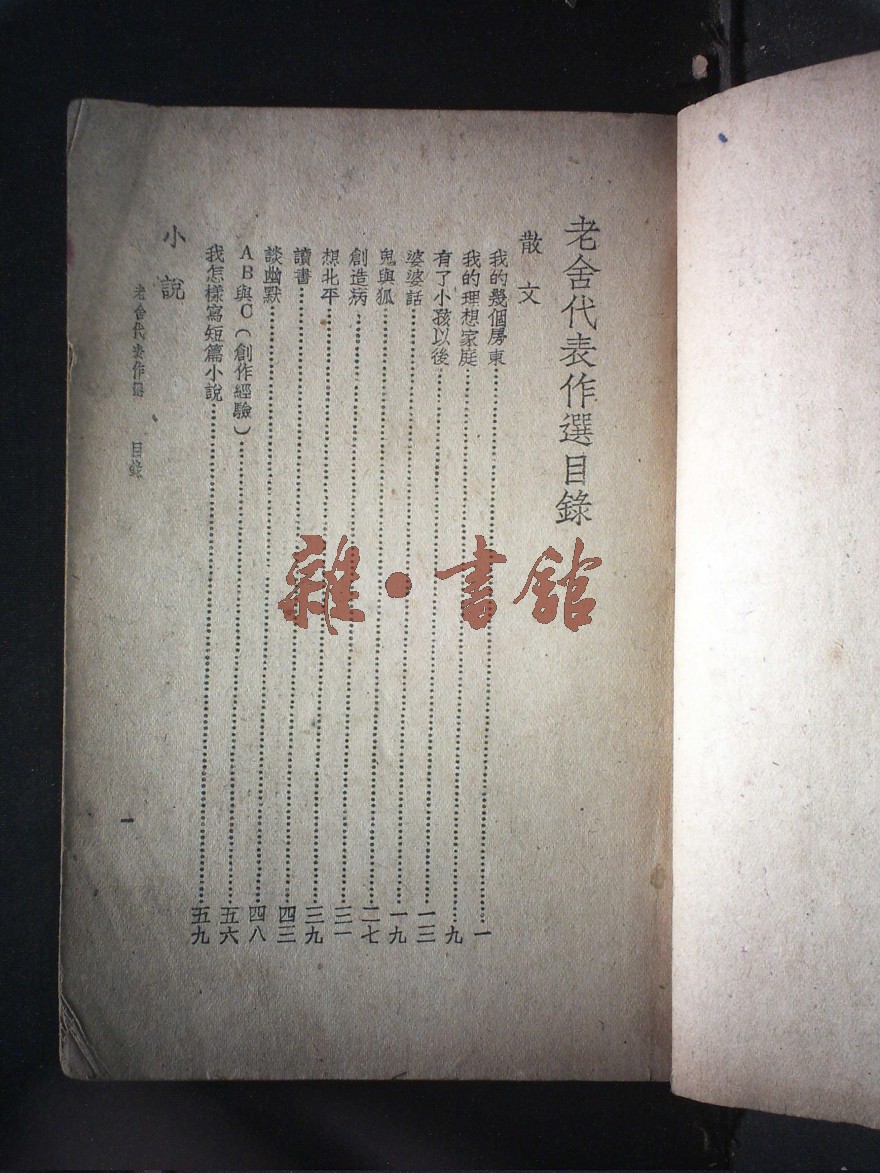 老舍代表作選目錄
散文
我的幾個房東…………一
我的理想家庭…………九
有了小孩以後…………一三
婆婆話…………一九
鬼與狐…………二七
創造病…………三一
想北平…………三九
讀書…………四三
談幽默…………四八
AB與C(創作經驗)…………五六
我怎樣寫短篇小說…………五九
小說
老舍代表作選 目錄
一
雜·書館